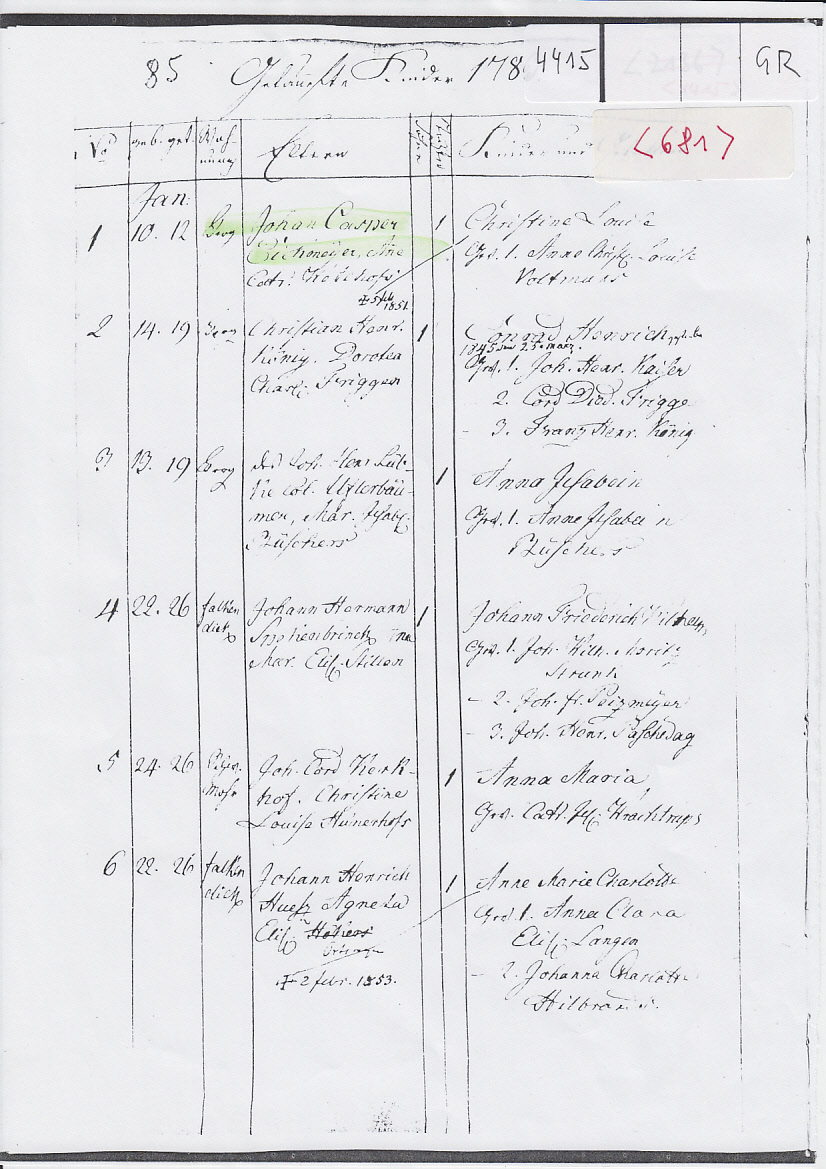 85 Getaufte Kinder 178
4415
GR
<681>
No geb. get. Woh-
nung
Eltern
Söhne
Töchter
Kinder und
Jan:
1 10. 12 Berg Johan Casper
Eickmeyer, Ane
Catr.
1 Christine Louise
Gev. 1. Anne Christ. Louise
Voltmans
1851.
2 14. 19 Berg Christian Henr.
König. Dorotea
Charl. Friggen
1 Conrad Henrich
1845 den 25. März.
Gev. 1. Joh. Henr. Kaiser
2. Cord Died. Frigge
- 3. Franz Henr. König
3 13. 19 Berg des Joh. Hen. Lüb-
ke col. Uflerbäu-
mer, Mar. Ilsabe.
Büschers
1 Anna Ilsabein
Gev. 1. Anne Ilsabein
Büschers
4 22. 26 falken
diek
Johann Hermann
Mar. Elis.
1 Johann Friederich Wilhelm,
Gev. 1. Joh. Wilh. Moritz
Strunk
- 2. Joh. fr.
- 3. Joh. Henr. Paschedag
5 24. 26
Joh. Cord Kerk-
hof. Christine
Louise Hünerhofs
1 Anna Maria
Gev. Cath. Ils. Krachtrups
6 22. 26 falken
diek
Johann Henrich
Agnesa
Elis.
† 2 febr. 1853.
1 Anne Marie Charlotte
Gev. 1. Anna Clara
Elis. Langen
- 2. Johanna Charlotte